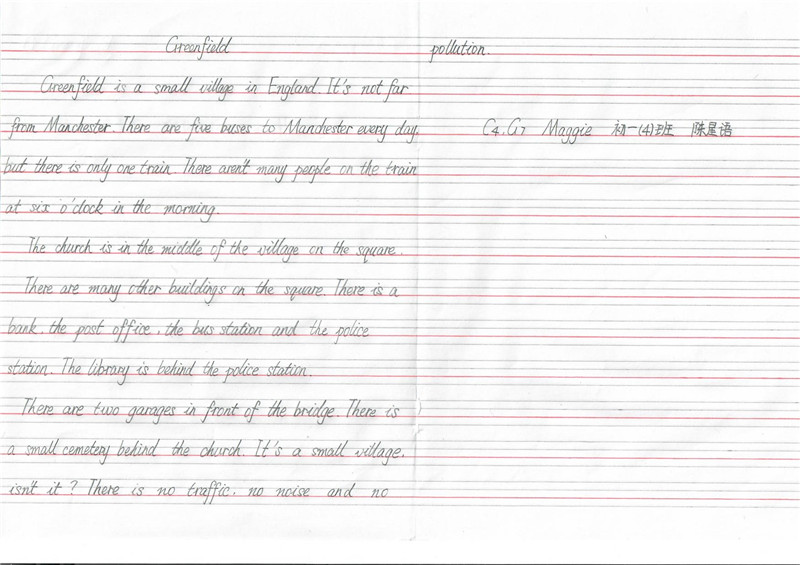 Greenfield
Greenfield is a small village in England. It's not far
from Manchester. There are five buses to Manchester every day,
but there is only one train. There aren't many people on the train
at six o'clock in the morning.
The church is in the middle of the village on the square.
There are many other buildings on the square. There is a
bank, the post office, the bus station and the police
station. The library is behind the police station.
There are two garages in front of the bridge. There is
a small cemetery behind the church. It's a small village,
isn't it? There is no traffic, no noise and no
pollution.
C4.G7 Maggie 初一(4)班 陈星语